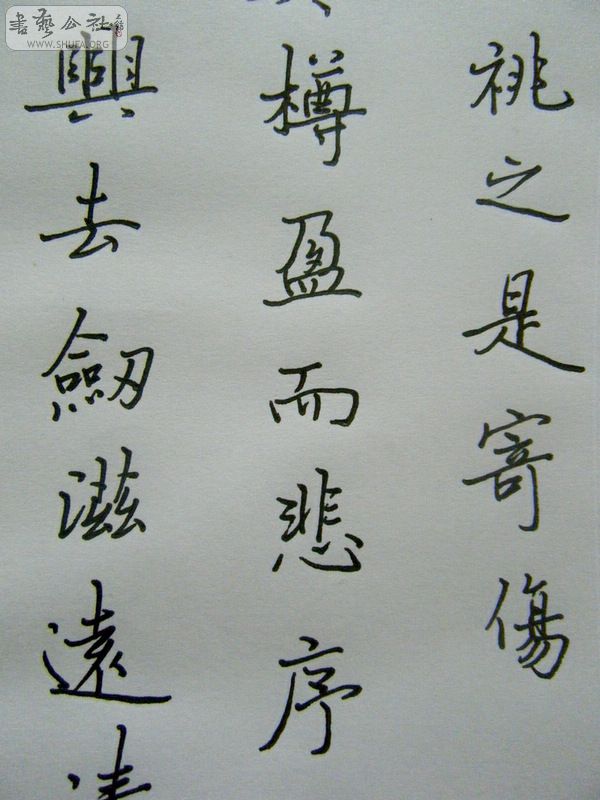 祧之是寄傷
樽盈而悲序
興去劒滋遠清
書藝公社
WWW.SHUFA.ORG